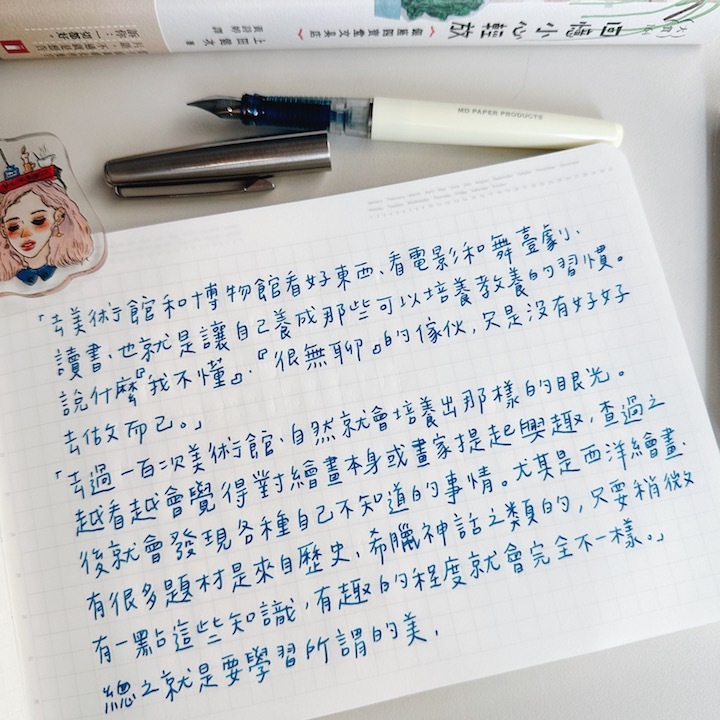 回憶小心輕放
上田健次 著
MD PAPER PRODUCTS
「去美術館和博物館看好東西、看電影和舞臺劇、
讀書、也就是讓自己養成那些可以培養教養的習慣。
說什麼『我不懂』、『很無聊』的傢伙,只是沒有好好
去做而已。」
「去過一百次美術館、自然就會培養出那樣的眼光。
越看越會覺得對繪畫本身或畫家提起興趣,查過之
後就會發現各種自己不知道的事情。尤其是西洋繪畫、
有很多題材是來自歷史、希臘神話之類的,只要稍微
有一點這些知識,有趣的程度就會完全不一樣。」
總之就是要學習所謂的美,